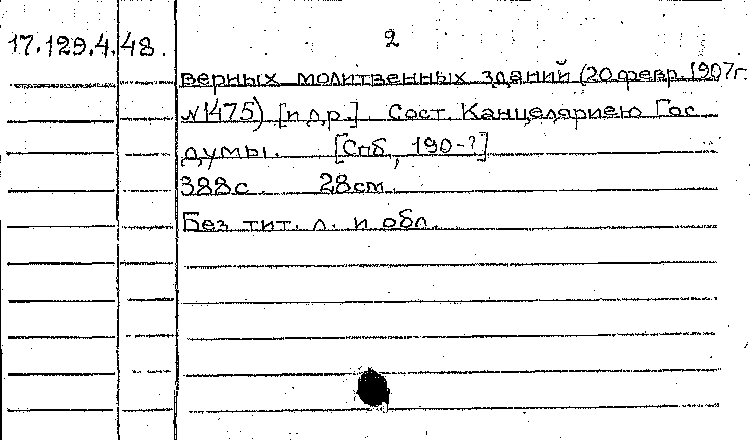 17.129.4.48. 2
верных молитвенных зданий (20 февр. 1907г.
№1475) [и др.] Сост. Канцелярией Гос.
думы. [Спб, 190-?]
388с. 28см.
Без тит. л. и обл.